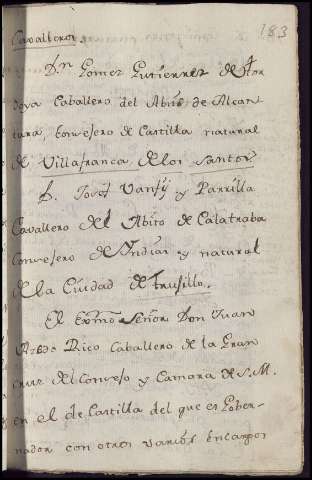 183
Cavalleros.
Dn Gomez Gutierrez de Tor
doya Caballero del Abito de Alcan-
tara, Consejero de Castilla natural
de Villafranca de los Santos
D. Josef Vansij y Parrilla
Cavallero del Abito de Calatraba
Consejero de Indias y natural
de la Ciudad de Trusillo.
El Exmo Señor Don Juan
Rico Caballero de la Gran
Cruz del Consejo y Camara de S. M.
en el de Castilla del que es Gober-
nador con otros varios encargos